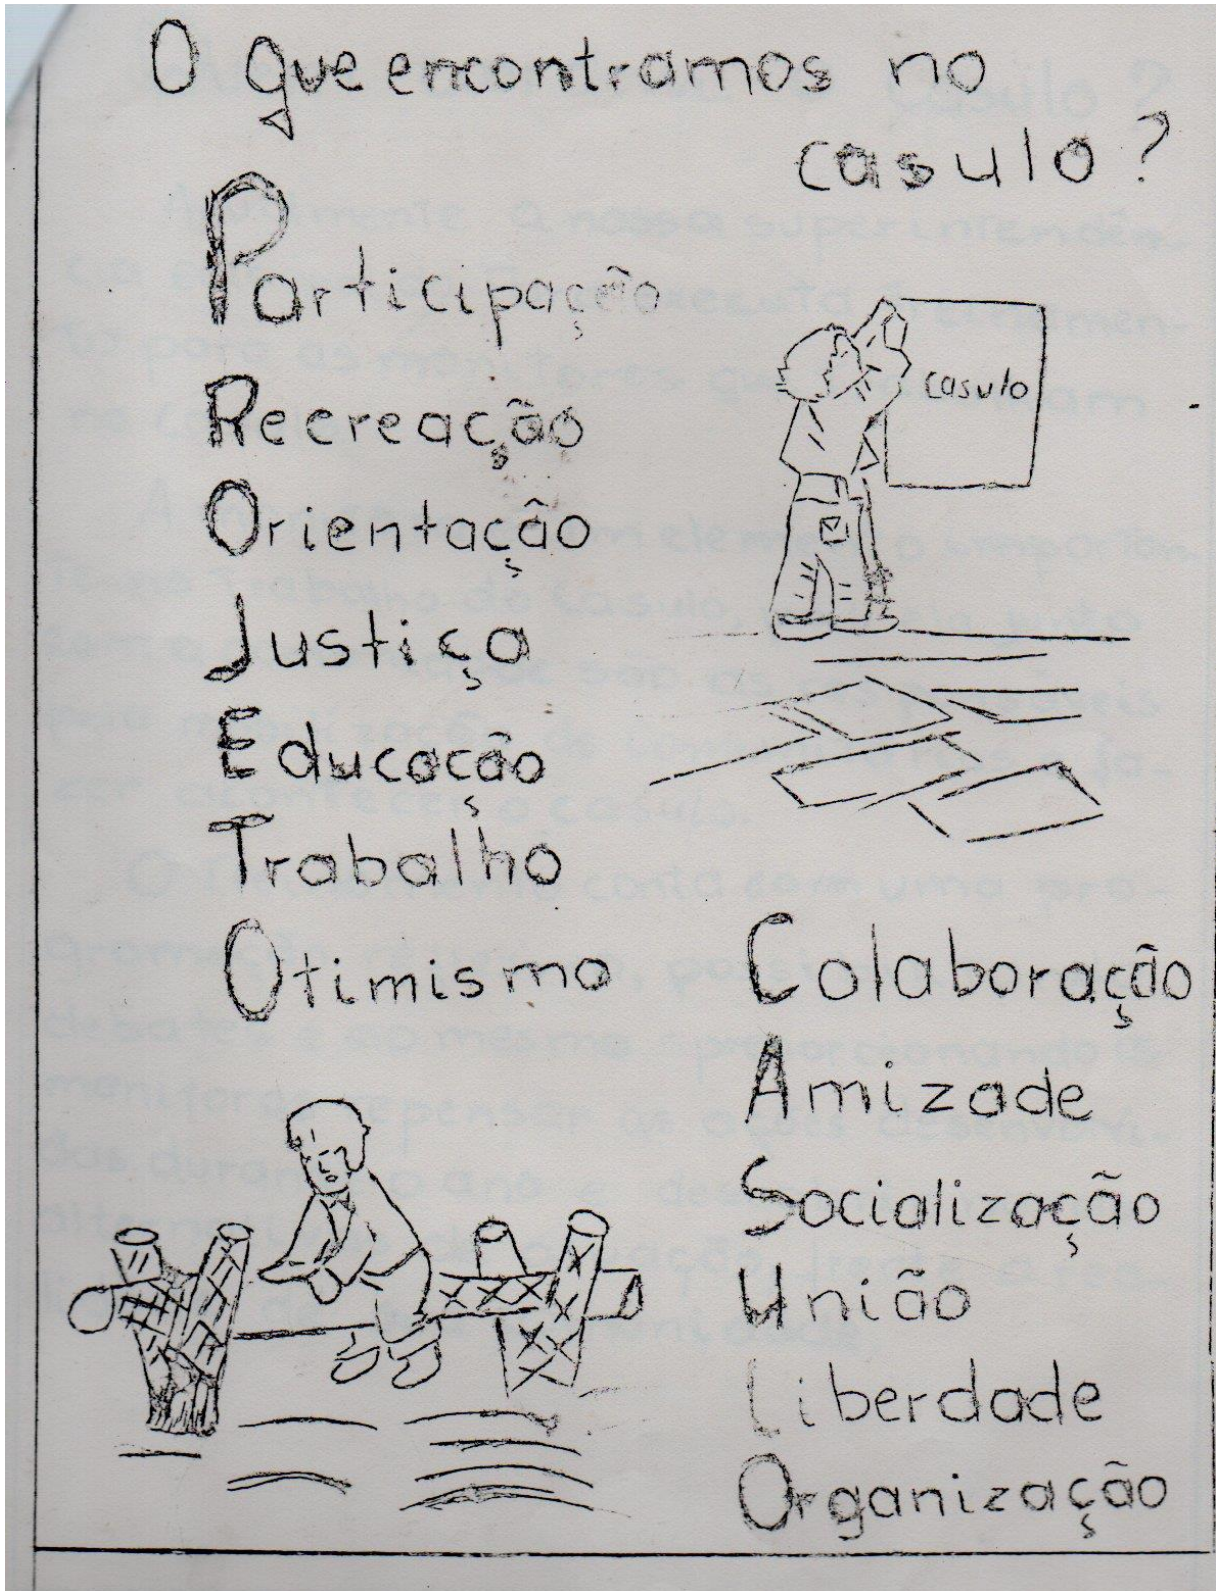 O que encontramos no
casulo?
Participação
Recreação
Orientação
Justiça
Educação
Trabalho
Otimismo
casulo
Colaboração
Amizade
Socialização
União
Liberdade
Organização